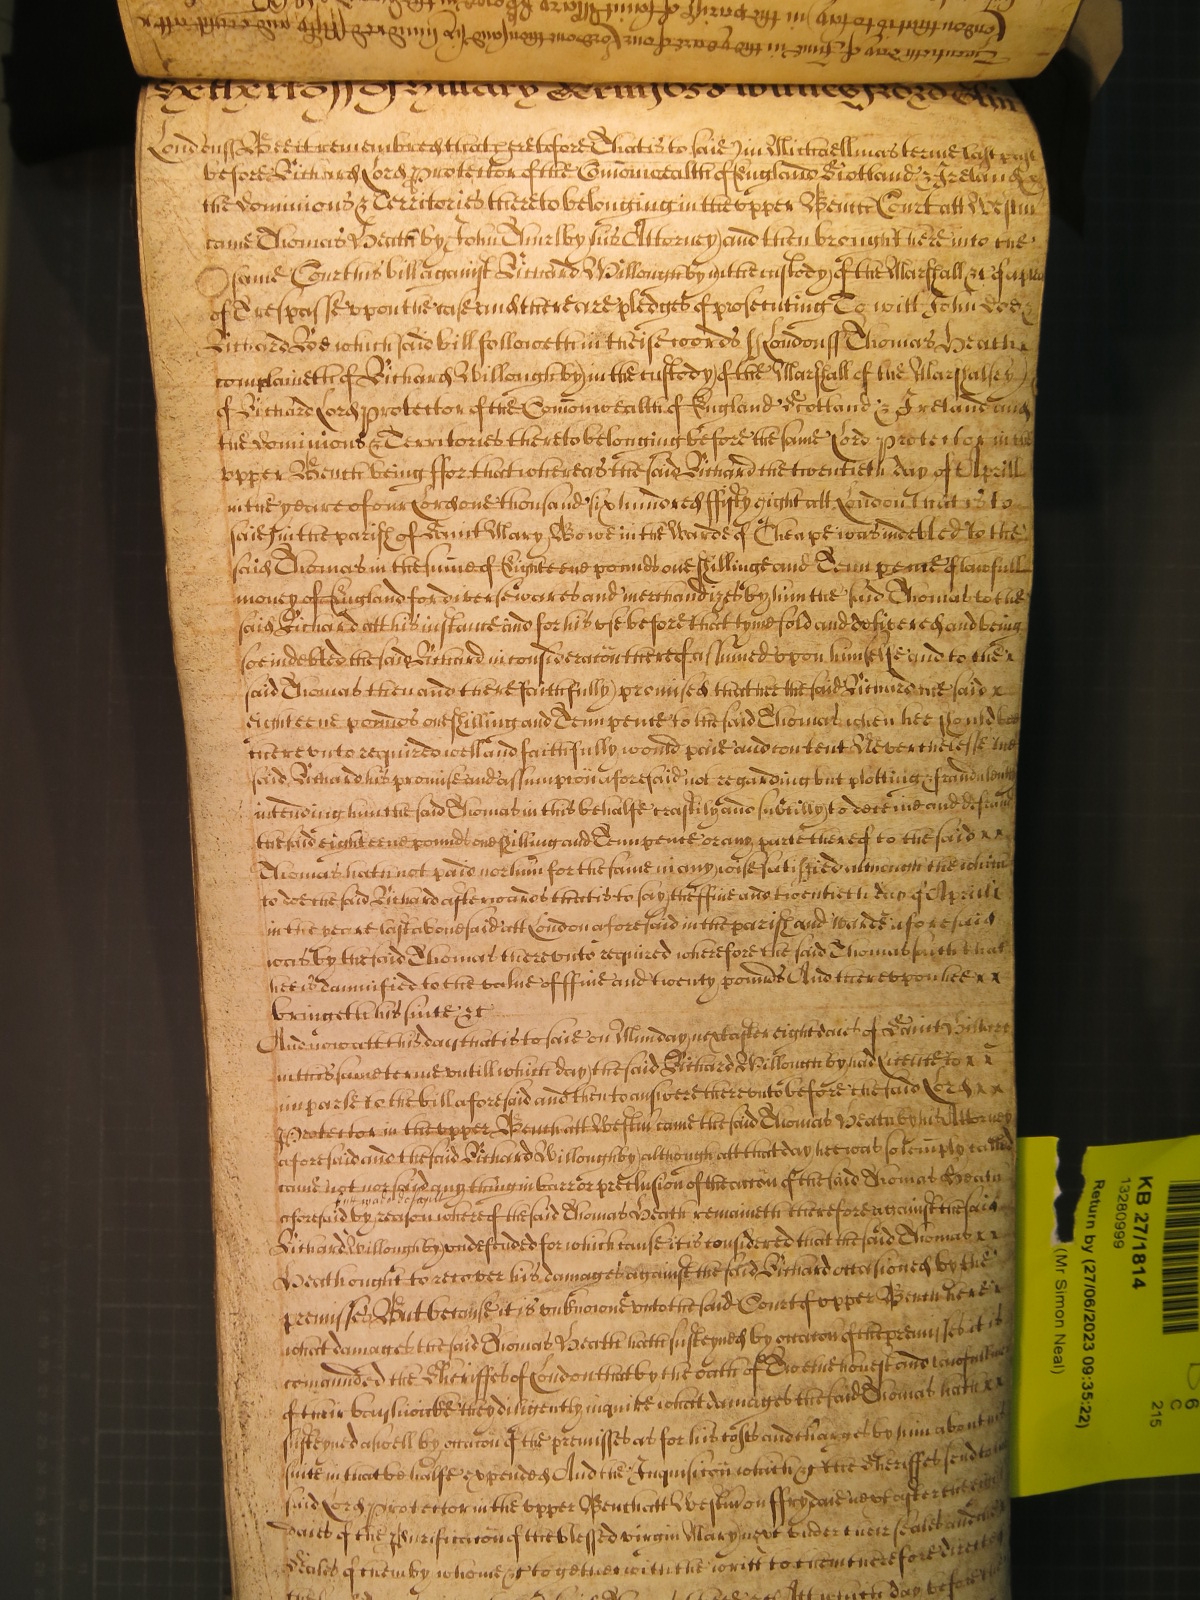 Yet the rolls of Hillary Terme 1658 Witnes
Londonss Bee it remembred that heretofore That is to saie in Michaellmas terme last past
before Richard Lord Protector of the Comonwealth of England Scotland & Ireland &
the dominions & Territories thereto belonging in the vpper Bench Court att Westm
came Thomas Heath by John Thurlby his Attorney and then brought here into the
same Court his bill against Richard Willoughby in the custody of the Marshall &c of a plea
of Trespasse vpon the case and there are pledges of prosecuting To witt John Doe &
Richard Roe which said bill followeth in theise words ss Londonss Thomas Heath x
complaineth of Richard Willoughby in the custody of the Marshall of the Marshalsey
of Richard Lord Protector of the Comonwealth of England Scotland & Ireland and
the dominions & Territories thereto belonging before the same Lord Protector in the
vpper Bench being ffor that whereas the said Richard the twentieth day of Aprill
in the yeare of our Lord one thousand six hundred ffifty eight att London that is to
saie in the parish of Saint Mary Bowe in the Warde of Cheape was indebted to the
said Thomas in the sume of Eighteene pounds one shillinge and Tenn pence of lawfull
money of England for diverse wares and merchandizes by him the said Thomas to the
said Richard att his instance and for his vse before that tyme sold and delivered and being
soe indebted the said Richard in consideracon thereof assumed vpon himselfe and to the x
said Thomas then and there faithfully promised that hee the said Richard the said x
eighteene pounds one shilling and Tenn pence to the said Thomas when hee should bee
therevnto required well and faithfully would paie and content Neverthelesse the
said Richard his promise and assumption aforesaid not regarding but plotting & fraudulently
intending him the said Thomas in this behalfe craftily and subtilly to deceive and defraud
the said eighteene pounds one shilling and Tenn pence or any parte thereof to the said x x
Thomas hath not paid nor him for the same in any wise satisfied although the which
to doe the said Richard afterwards that is to say the ffive and twentieth day of Aprill
in the yeare last abouesaid att London aforesaid in the parish and Warde aforesaid
was by the said Thomas therevnto required wherefore the said Thomas saith that
hee is damnified to the value of ffive and twenty pounds And therevpon hee x x
bringeth his suite &c
And now att this day that is to saie on Munday next after eight daies of Saint Hillary
in this same terme vntill which day the said Richard Willoughby had licence to x x
imparle to the bill aforesaid and then to answere therevnto before the said Lord x x
Protector in the vpper Bench att Westm came the said Thomas Heath by his Attorney
aforesaid and the said Richard Willoughby although att that day hee was solemply called
came not nor said any thing in barr or preclusion of the accon of the said Thomas Heath
aforesaid by reason whereof the said Thomas Heath remaineth therefore against the said
Richard Willoughby vndefended for which cause it is considered that the said Thomas x x
Heath ought to recover his damages against the said Richard occasioned by the
premisses But because it is vnknowne vnto the said Court of vpper Bench here x
what damages the said Thomas Heath hath susteyned by occacon of the premisses it is
comannded the Sheriffes of London that by the oath of Twelve honest and lawfull men
of their bayliwicke they diligently inquire what damages the said Thomas hath x x
susteyned aswell by occacon of the premisses as for his costs and charges by him about his
suite in that behalfe expended And the Inquisicon which &c the Sheriffes send to the
said Lord Protector in the vpper Bench att Westm on ffryday next after the
daies of the Purificacon of the blessed virgin Mary next vnder their seales and the
Seales of them by whome &c together with the writt to them therefore directed
KB 27/1814
13280999
Return by (27/06/2023 09:35:22)
(Mr Simon Neal)
215
C
6